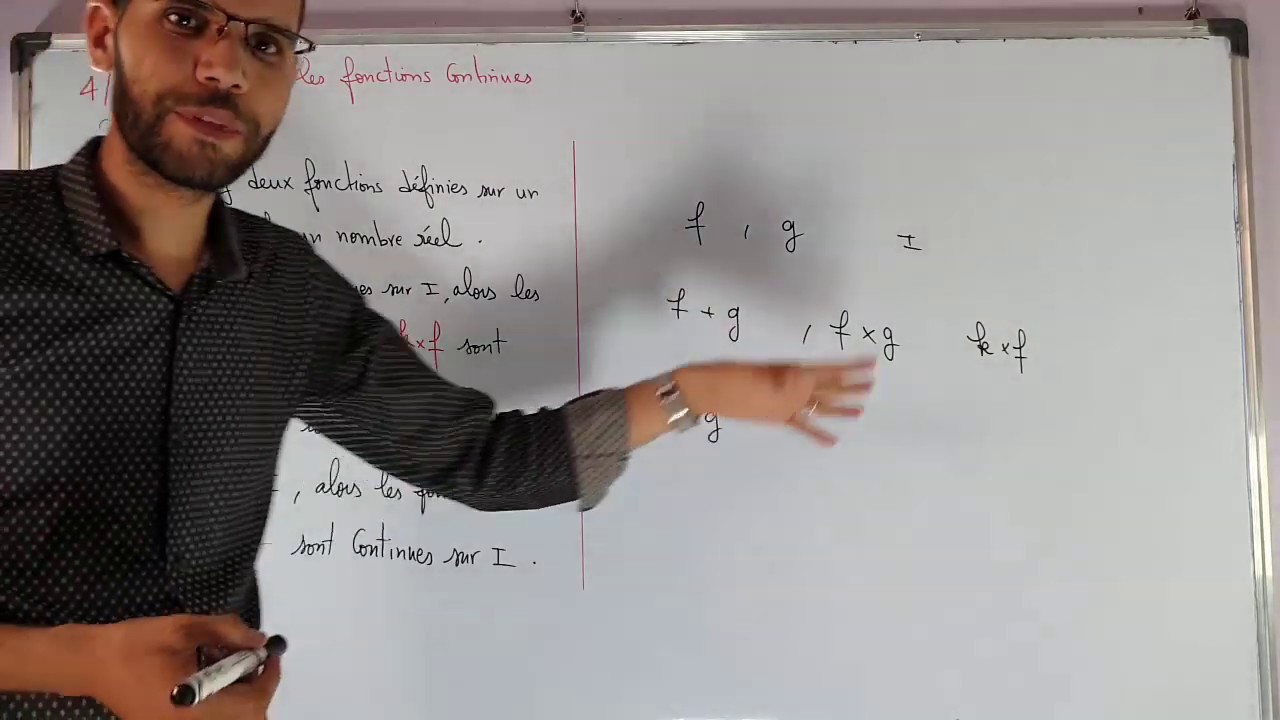 4/ les fonctions Continues
g deux fonctions définies sur un
un nombre réel .
sur I, alors les
k×f sont
, alors les
sont Continues sur I .
f , g I
f + g , f × g k × f
g